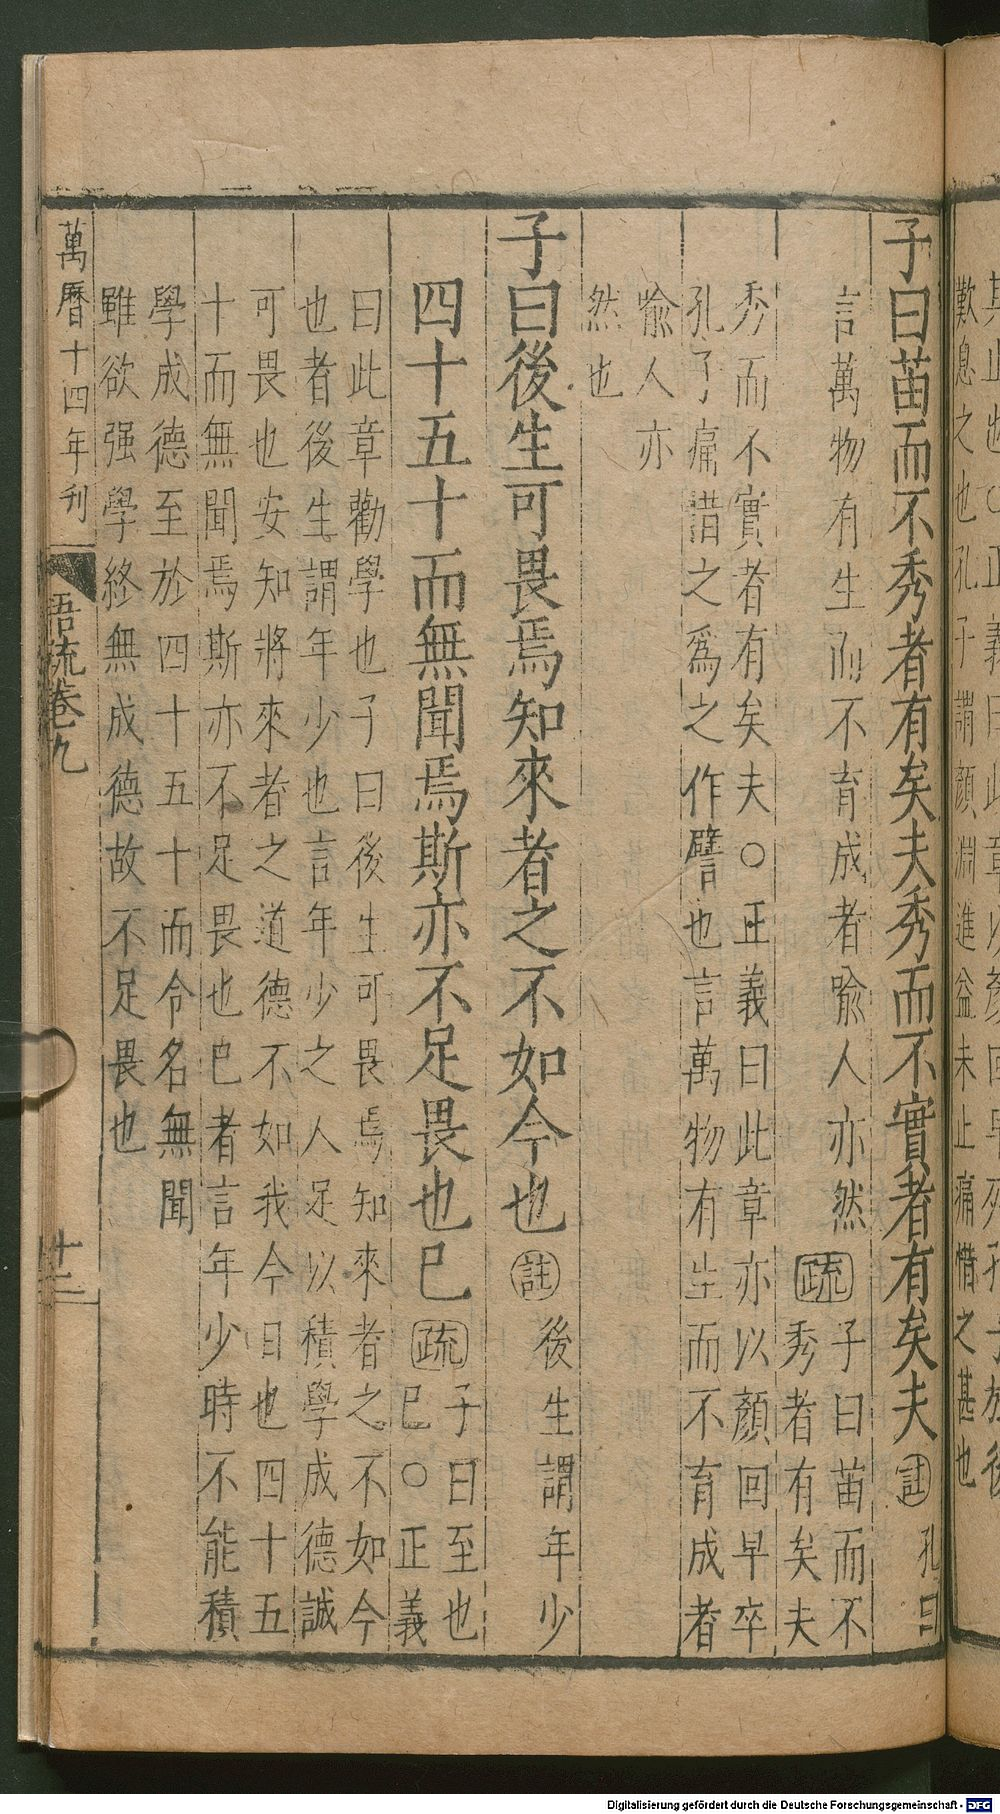 歎息之也孔子謂顏淵進益未止痛惜之甚也
子曰苗而不秀者有矣夫秀而不實者有矣夫註孔曰
言萬物有生而不育成者喩人亦然疏子曰苗而不
秀者有矣夫
秀而不實者有矣夫○正義曰此章亦以顏回早卒
孔子痛惜之爲之作譬也言萬物有生而不育成者
喩人亦
然也
子曰後生可畏焉知來者之不如今也註後生謂年少
四十五十而無聞焉斯亦不足畏也已疏子曰至也
已○正義
曰此章勸學也子曰後生可畏焉知來者之不如今
也者後生謂年少也言年少之人足以積學成德誠
可畏也安知將來者之道德不如我今日也四十五
十而無聞焉斯亦不足畏也已者言年少時不能積
學成德至於四十五十而令名無聞
雖欲强學終無成德故不足畏也
萬曆十四年刊
語疏卷九
十二
Digitalisierung gefördert durch die Deutsche Forschungsgemeinschaft - DFG